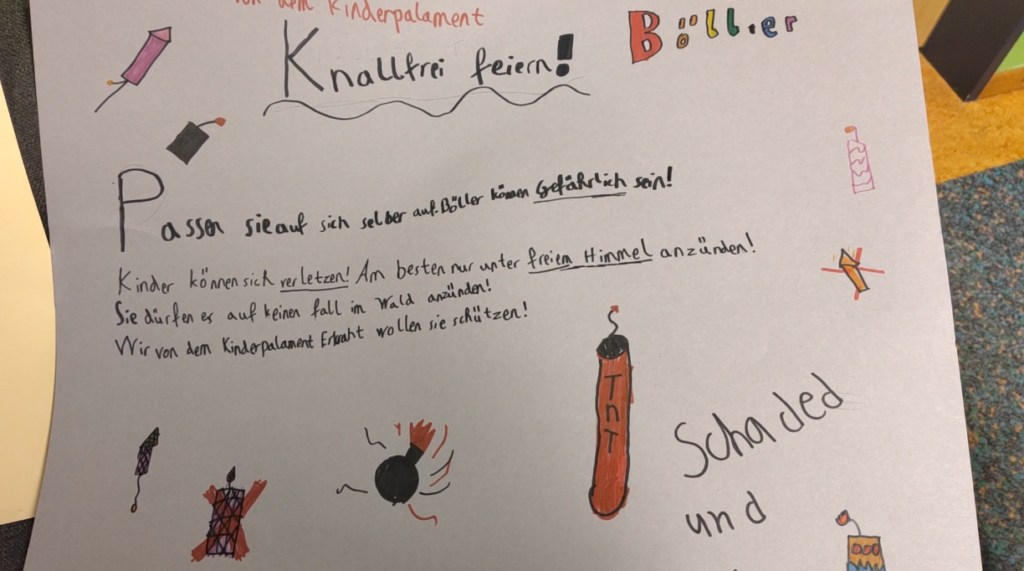 von dem Kinderpalament
Knallfrei feiern!
Böller
Passen sie auf sich selber auf. Böller können Gefährlich sein!
Kinder können sich verletzen! Am besten nur unter freiem Himmel anzünden!
Sie dürfen es auf keinen fall im Wald anzünden!
Wir von dem Kinderpalament Erbaht wollen sie schützen!
TnT
Schaded
und